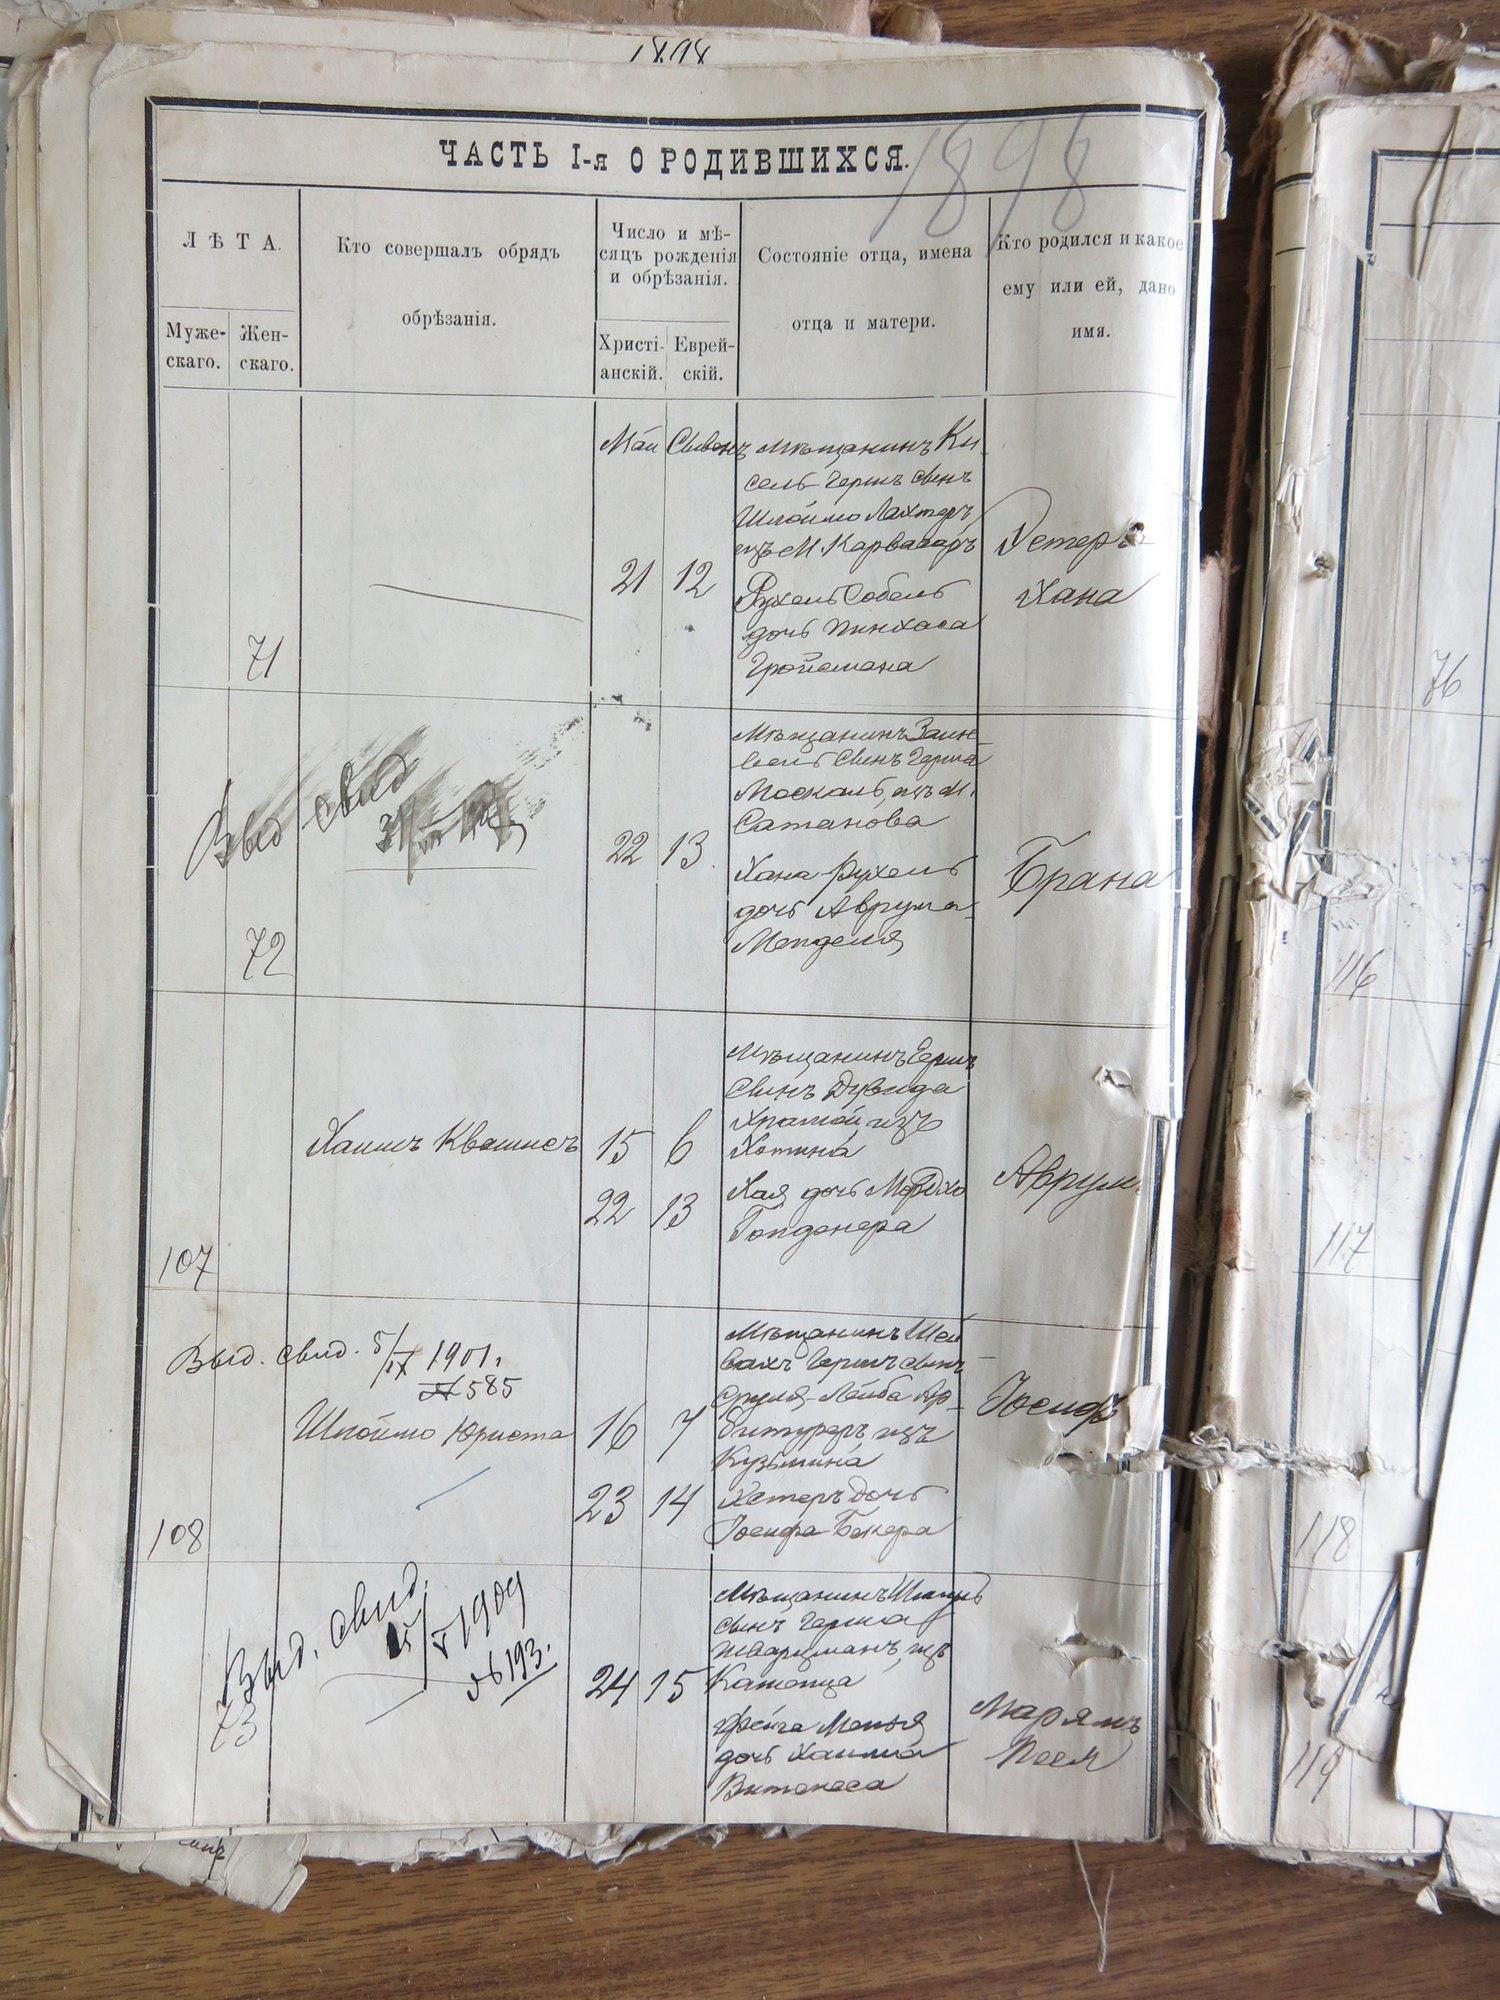 1898
ЧАСТЬ I-я О РОДИВШИХСЯ.
1898
ЛѢТА.
Муже-
скаго.
Жен-
скаго.
Кто совершалъ обрядъ
обрѣзанія.
Число и мѣ-
сяцъ рожденія
и обрѣзанія.
Христі-
анскій.
Еврей-
скій.
Состояніе отца, имена
отца и матери.
Кто родился и какое
ему или ей, дано
имя.
71
Маи Сивонъ
21 12
Мѣщанинъ Ки
сель Гершъ сынъ
Шлоймо Лахтеръ
изъ М. Карвасаръ
Рухель Собель
дочь Пинхаса
Гройсмана
Эстеръ
Хана
72
Выд свид
22 13
Мѣщанинъ Заин
вель сынъ Герша
Москаль, изъ м.
Сатанова
Хана Рухель
дочь Аврума
Менделя
Брана
107
Хаимъ Квашисъ
15 6
22 13
Мѣщанинъ Гершъ
сынъ Дувида
изъ
Хотина
Хая дочь Мордхо
Аврум
108
Выд. свид. 5/IX 1901.
№ 585
Шлоймо Юриста
16 7
23 14
Мѣщанинъ Шеи
вахъ Гершъ сынъ
Сруля-Лейба Ар-
битуреръ изъ
Кузьмина
Эстеръ дочь
Іосифа Бекера
Іосифъ
73
Выд. свид.
V 1909
№ 193.
24 15
Мѣщанинъ
сынъ Герша
Шварцманъ, изъ
Фейга Менья
дочь Хаима
Маріямъ
Песя
76
116
117
118
119